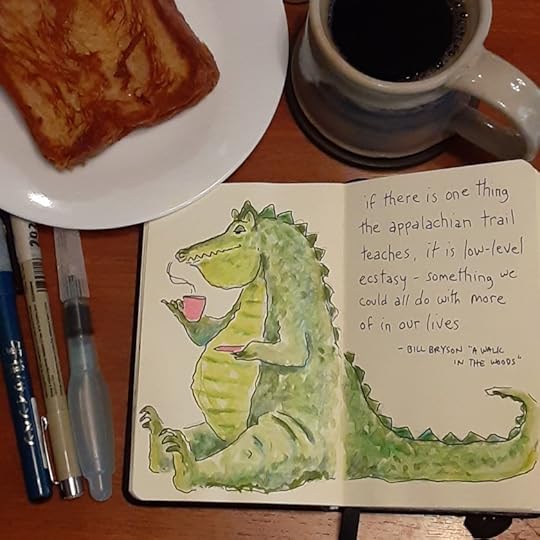 if there is one thing
the appalachian trail
teaches, it is low-level
ecstasy - something we
could all do with more
of in our lives
- BILL BRYSON "A WALK
IN THE WOODS"